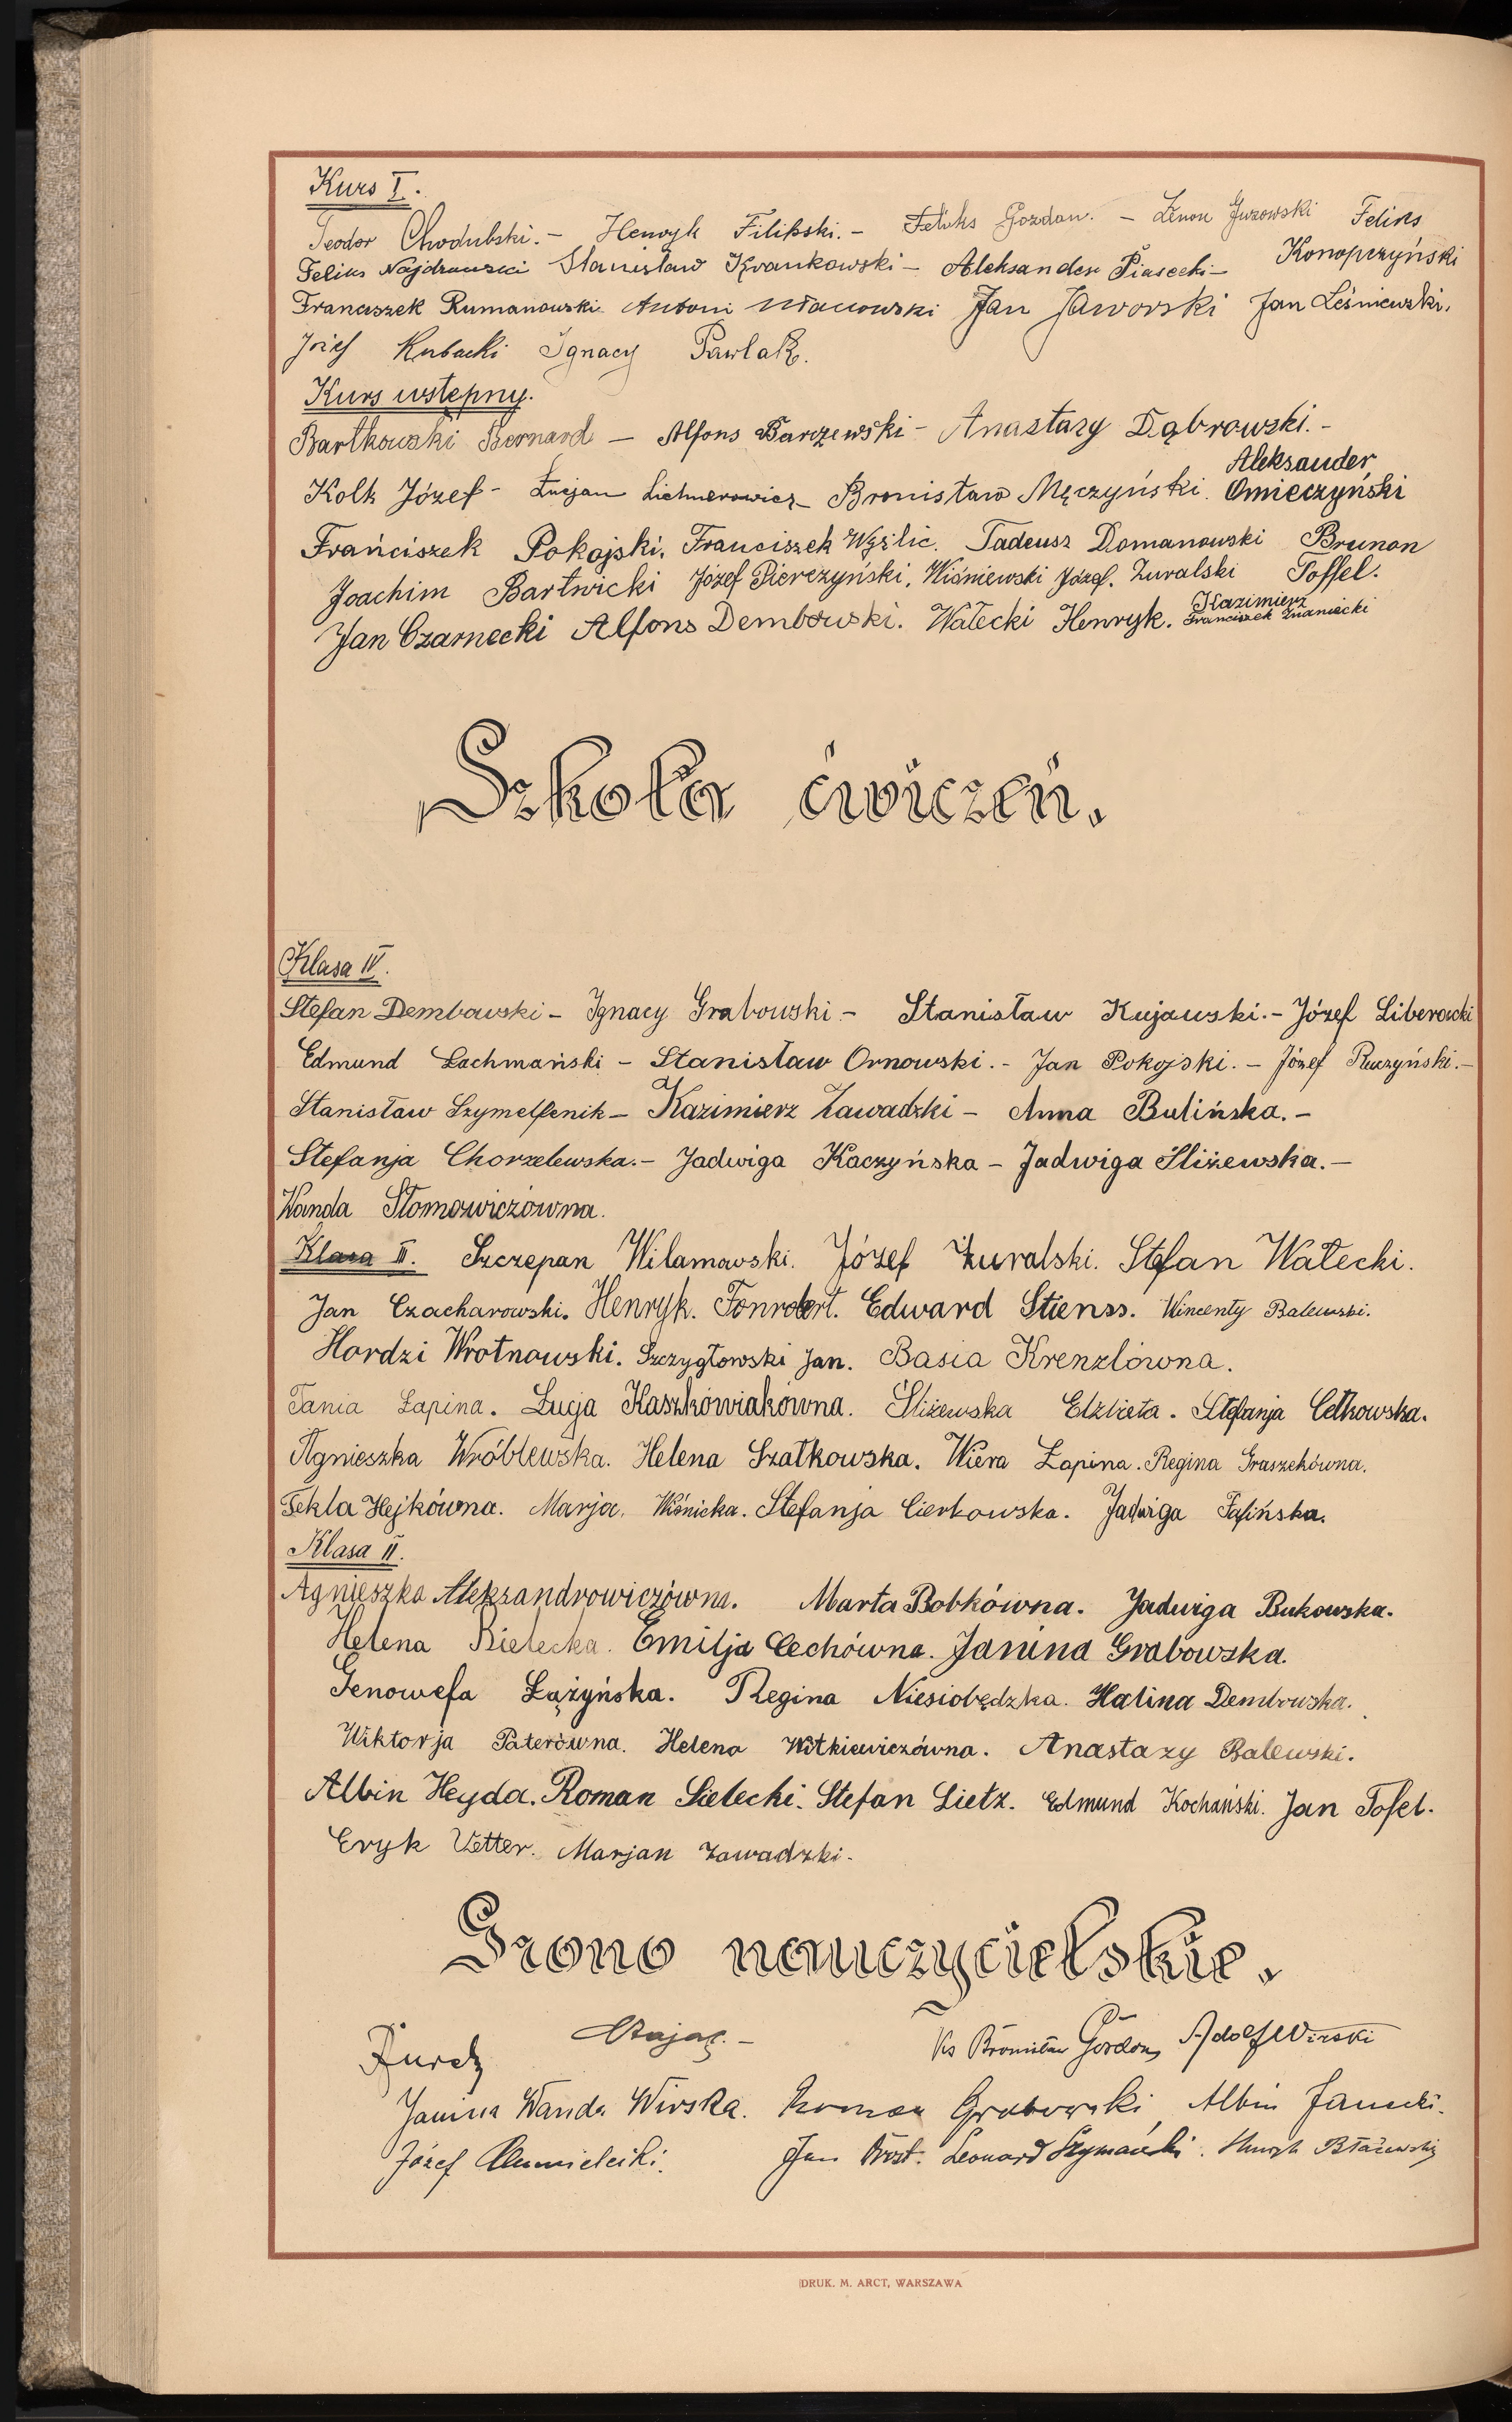 Kurs I.
Teodor Chodubski. - Henryk Filipski. - Feliks Gozdan. - Zenon Juzowski Feliks Konopczyński
Feliks Najdrowski Stanisław Kwankowski - Aleksander Piasecki -
Franciszek Rumanowski. Antoni Jan Jaworski Jan Leśniewski.
Józef Kubacki Ignacy Pawlak.
Kurs wstępny.
Bartkowski Bernard - Alfons Barczewski - Anastazy Dąbrowski. -
Kolk Józef - Łucjan Lichnerowicz - Bronisław Męczyński. Aleksander Omieczyński
Franciszek Pokojski. Franciszek Wyżlic. Tadeusz Domanowski Brunon Toffel.
Joachim Bartwicki Józef Pierczyński. Wiśniewski Józef. Żuralski
Jan Czarnecki Alfons Dembowski. Wałecki Henryk. Kazimierz Franciszek Znaniecki
Szkoła ćwiczeń.
Klasa IV.
Stefan Dembowski - Ignacy Grabowski - Stanisław Kujawski. - Józef Liberacki
Edmund Lachmański - Stanisław Ornowski. - Jan Pokojski. - Józef Ruczyński. -
Stanisław Szymelfenik - Kazimierz Zawadzki - Anna Bulińska. -
Stefanja Chorzelewska. - Jadwiga Kaczyńska - Jadwiga Śliżewska. -
Wanda Słomowiczówna.
Klasa III. Szczepan Wilamowski. Józef Żuralski. Stefan Wałecki.
Jan Czacharowski. Henryk. Fonrobert. Edward Stienss. Wincenty Balewski.
Hordzi Wrotnowski. Szczygłowski Jan. Basia Krenzlówna.
Tania Łapina. Łucja Kaszkówiakówna. Śliżewska Elżbieta. Stefanja Celkowska.
Agnieszka Wróblewska. Helena Szatkowska. Wiera Łapina. Regina Graszekówna.
Tekla Hejkówna. Marja. Wiśnicka. Stefanja Cierkowska. Jadwiga Falińska.
Klasa II.
Agnieszka Aleksandrowiczówna. Marta Bobkówna. Jadwiga Bukowska.
Helena Bielecka. Emilja Cechówna. Janina Grabowska.
Genowefa Łążyńska. Regina Niesiobędzka. Halina Dembowska.
Wiktorja Paterówna. Helena Witkiewiczówna. Anastazy Balewski.
Albin Heyda. Roman Sielecki. Stefan Lietz. Edmund Kochański. Jan Tofel.
Eryk Vetter. Marjan Zawadzki.
Grono nauczycielskie.
Ks Bronisław Gordon Adolf Wirski
Janina Wanda Wirska. Roman Grabowski Albin Janecki.
Józef Chmielecki. Jan Brost. Leonard Szymański. Henryk Błażewski
DRUK. M. ARCT, WARSZAWA